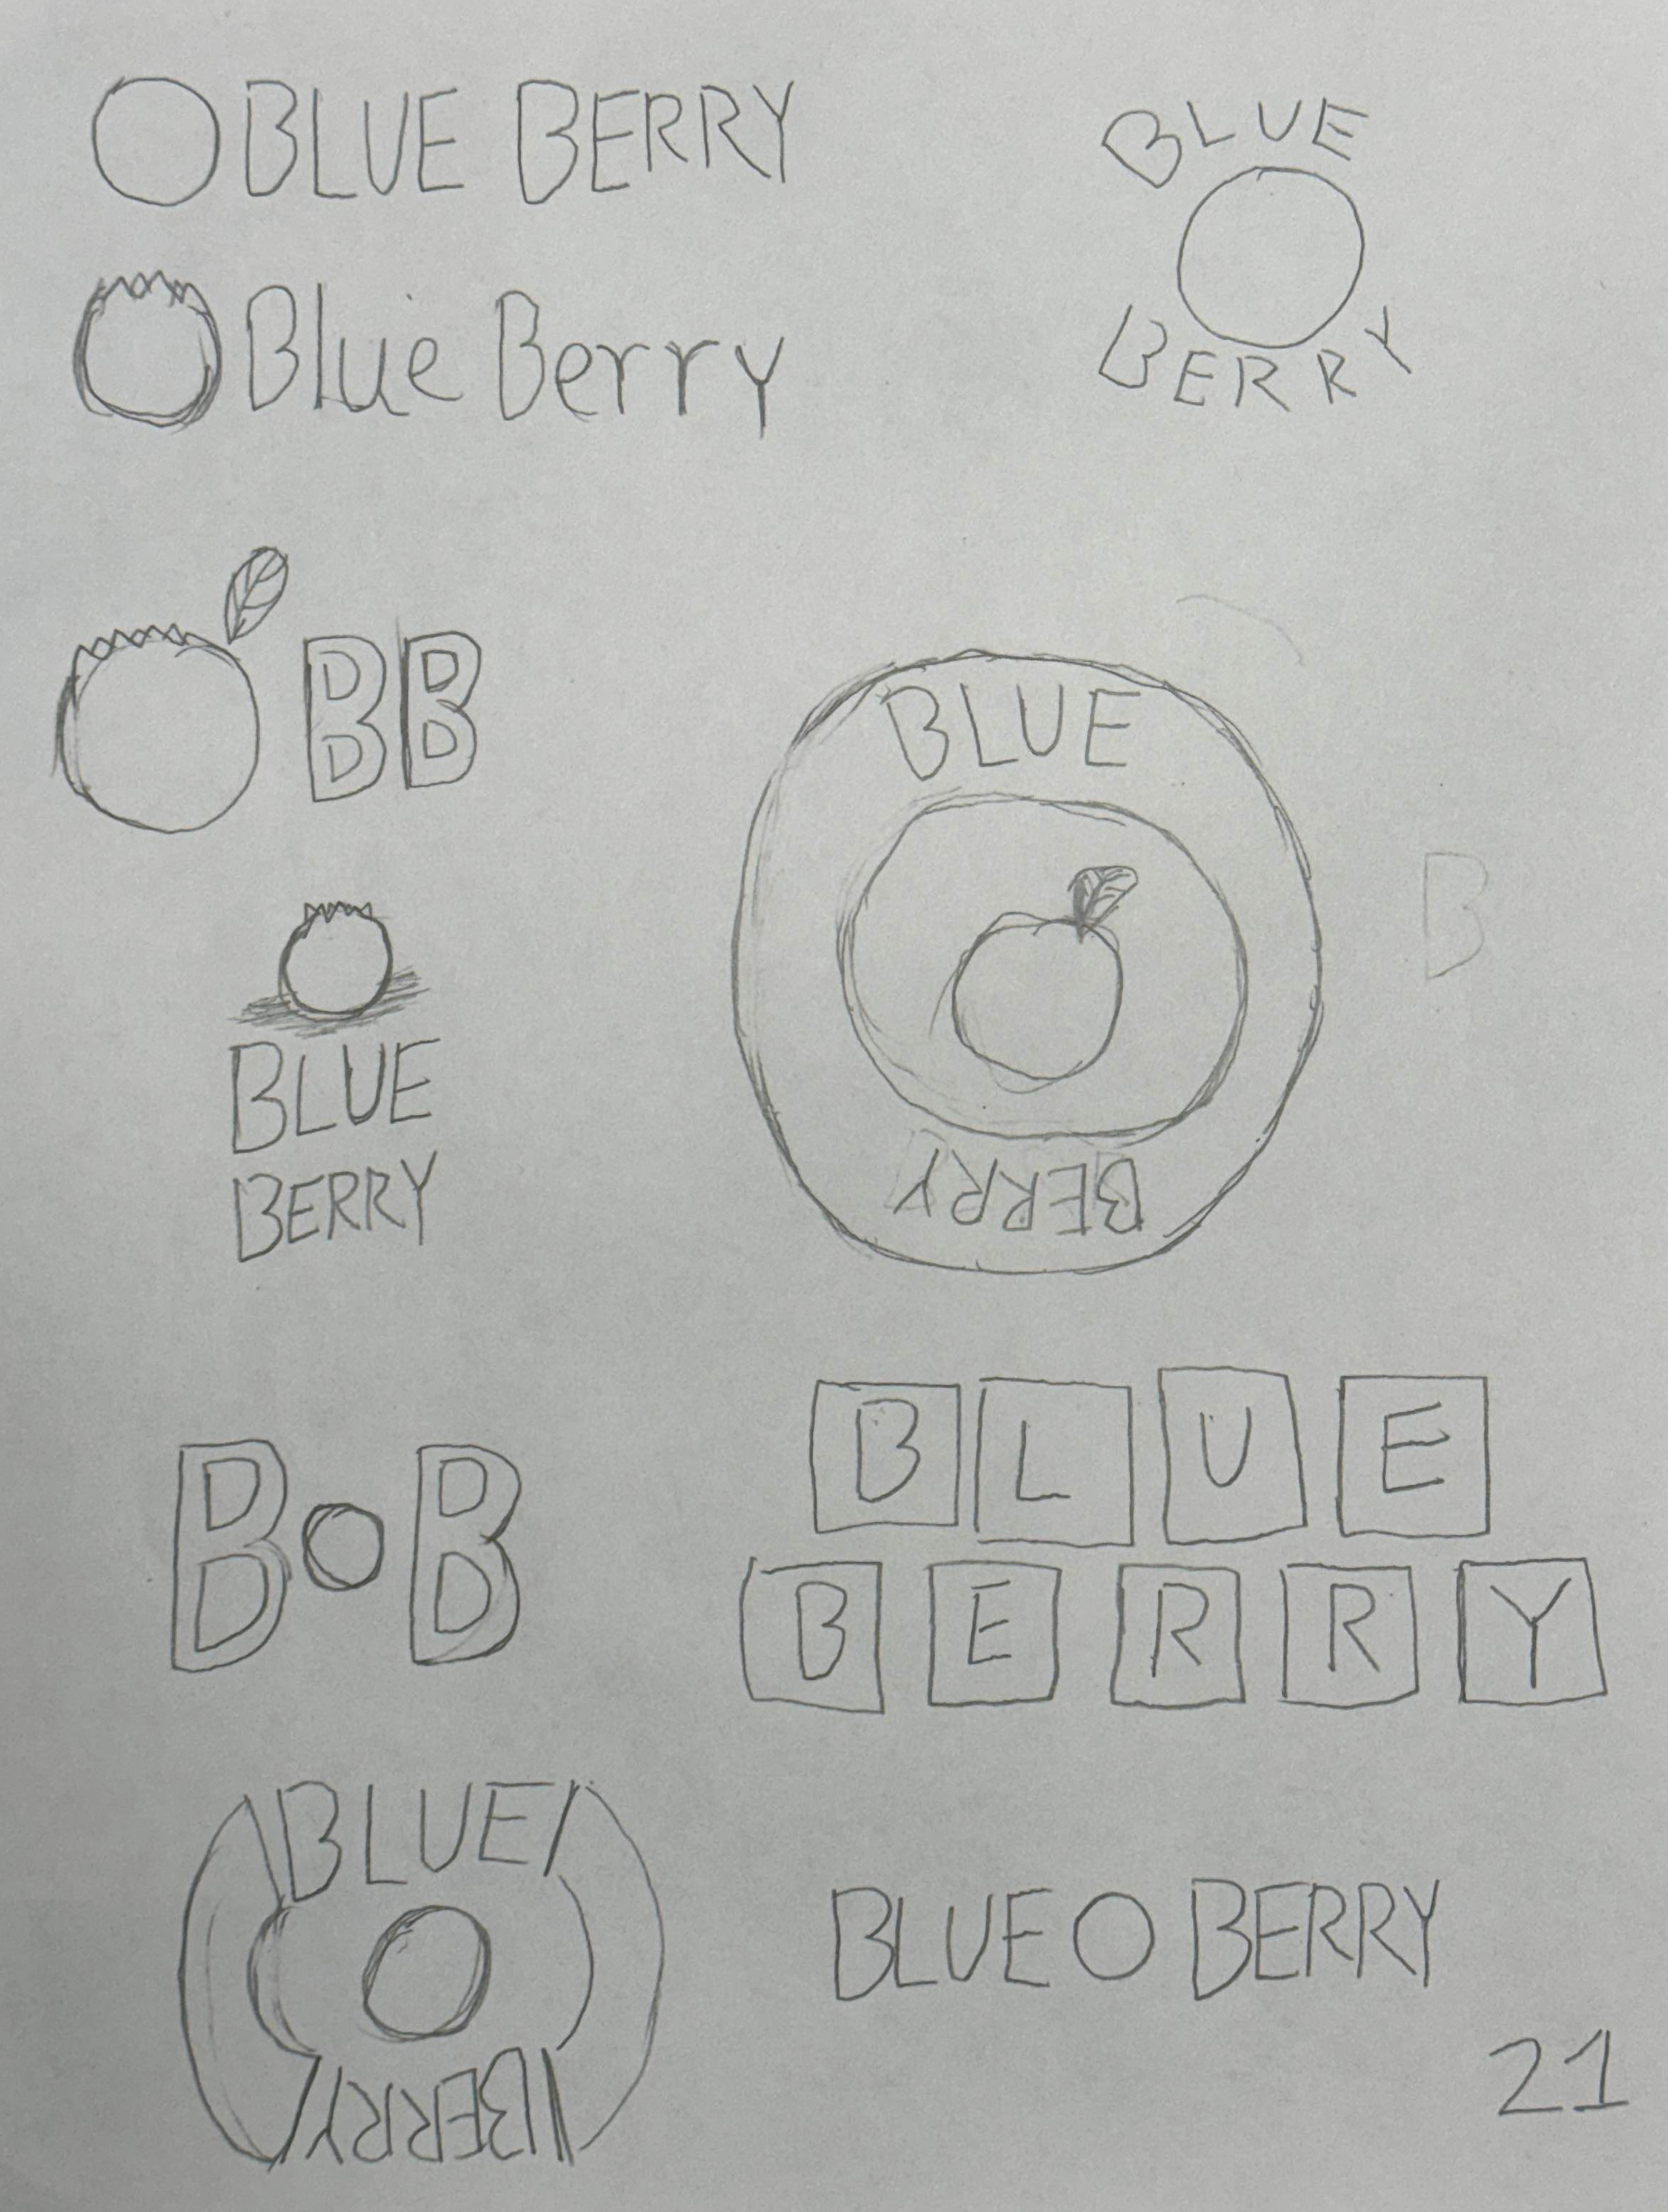 BLUE BERRY
Blue Berry
BLUE
BERRY
BB
BLUE
BERRY
B
BLUE
BERRY
B B
BLUE
BERRY
BLUE
BERRY
BLUE BERRY
21